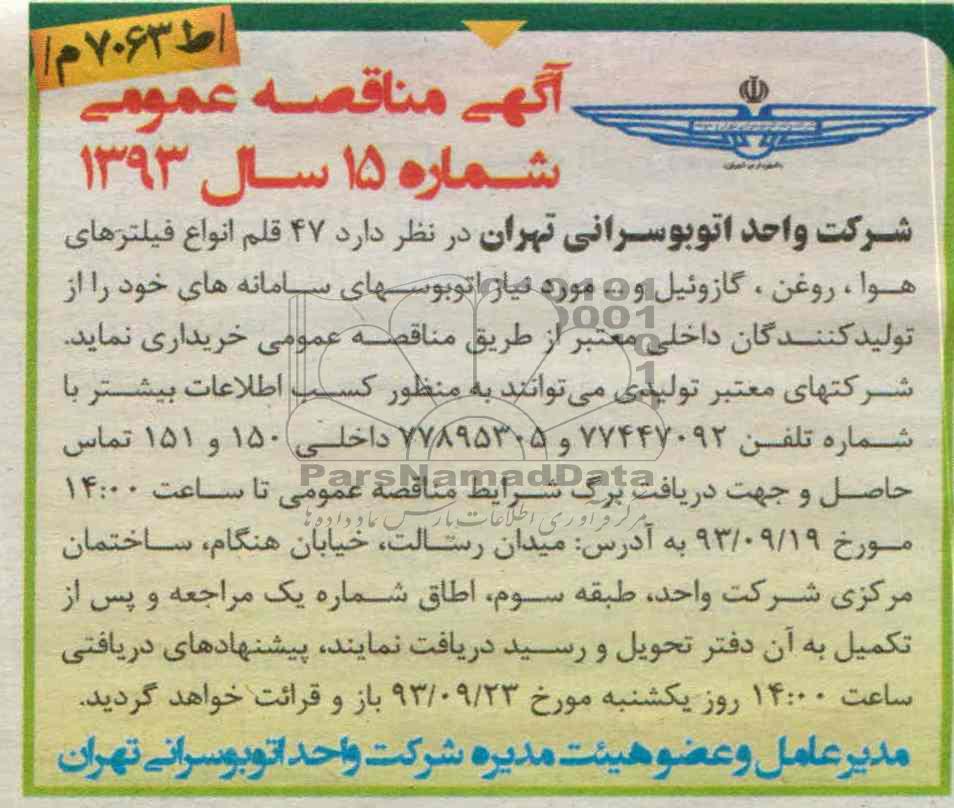 اط ۷۰۶۳ م/
آگهی مناقصه عمومی
شماره ۱۵ سال ۱۳۹۳
شرکت واحد اتوبوسرانی تهران در نظر دارد ۴۷ قلم انواع فیلترهای
هوا ، روغن ، گازوئیل و... مورد نیاز اتوبوسهای سامانه های خود را از
تولیدکنندگان داخلی معتبر از طریق مناقصه عمومی خریداری نماید.
شرکتهای معتبر تولیدی می‌توانند به منظور کسب اطلاعات بیشتر با
شماره تلفن ۷۷۴۴۷۰۹۲ و ۷۷۸۹۵۳۰۵ داخلی ۱۵۰ و ۱۵۱ تماس
حاصل و جهت دریافت برگ شرایط مناقصه عمومی تا ساعت ۱۴:۰۰
مورخ ۹۳/۰۹/۱۹ به آدرس: میدان رسالت، خیابان هنگام، ساختمان
مرکزی شرکت واحد، طبقه سوم، اطاق شماره یک مراجعه و پس از
تکمیل به آن دفتر تحویل و رسید دریافت نمایند، پیشنهادهای دریافتی
ساعت ۱۴:۰۰ روز یکشنبه مورخ ۹۳/۰۹/۲۳ باز و قرائت خواهد گردید.
مدیرعامل و عضو هیئت مدیره شرکت واحد اتوبوسرانی تهران
ParsNamadData
مرکز فرآوری اطلاعات پارس نماد داده ها